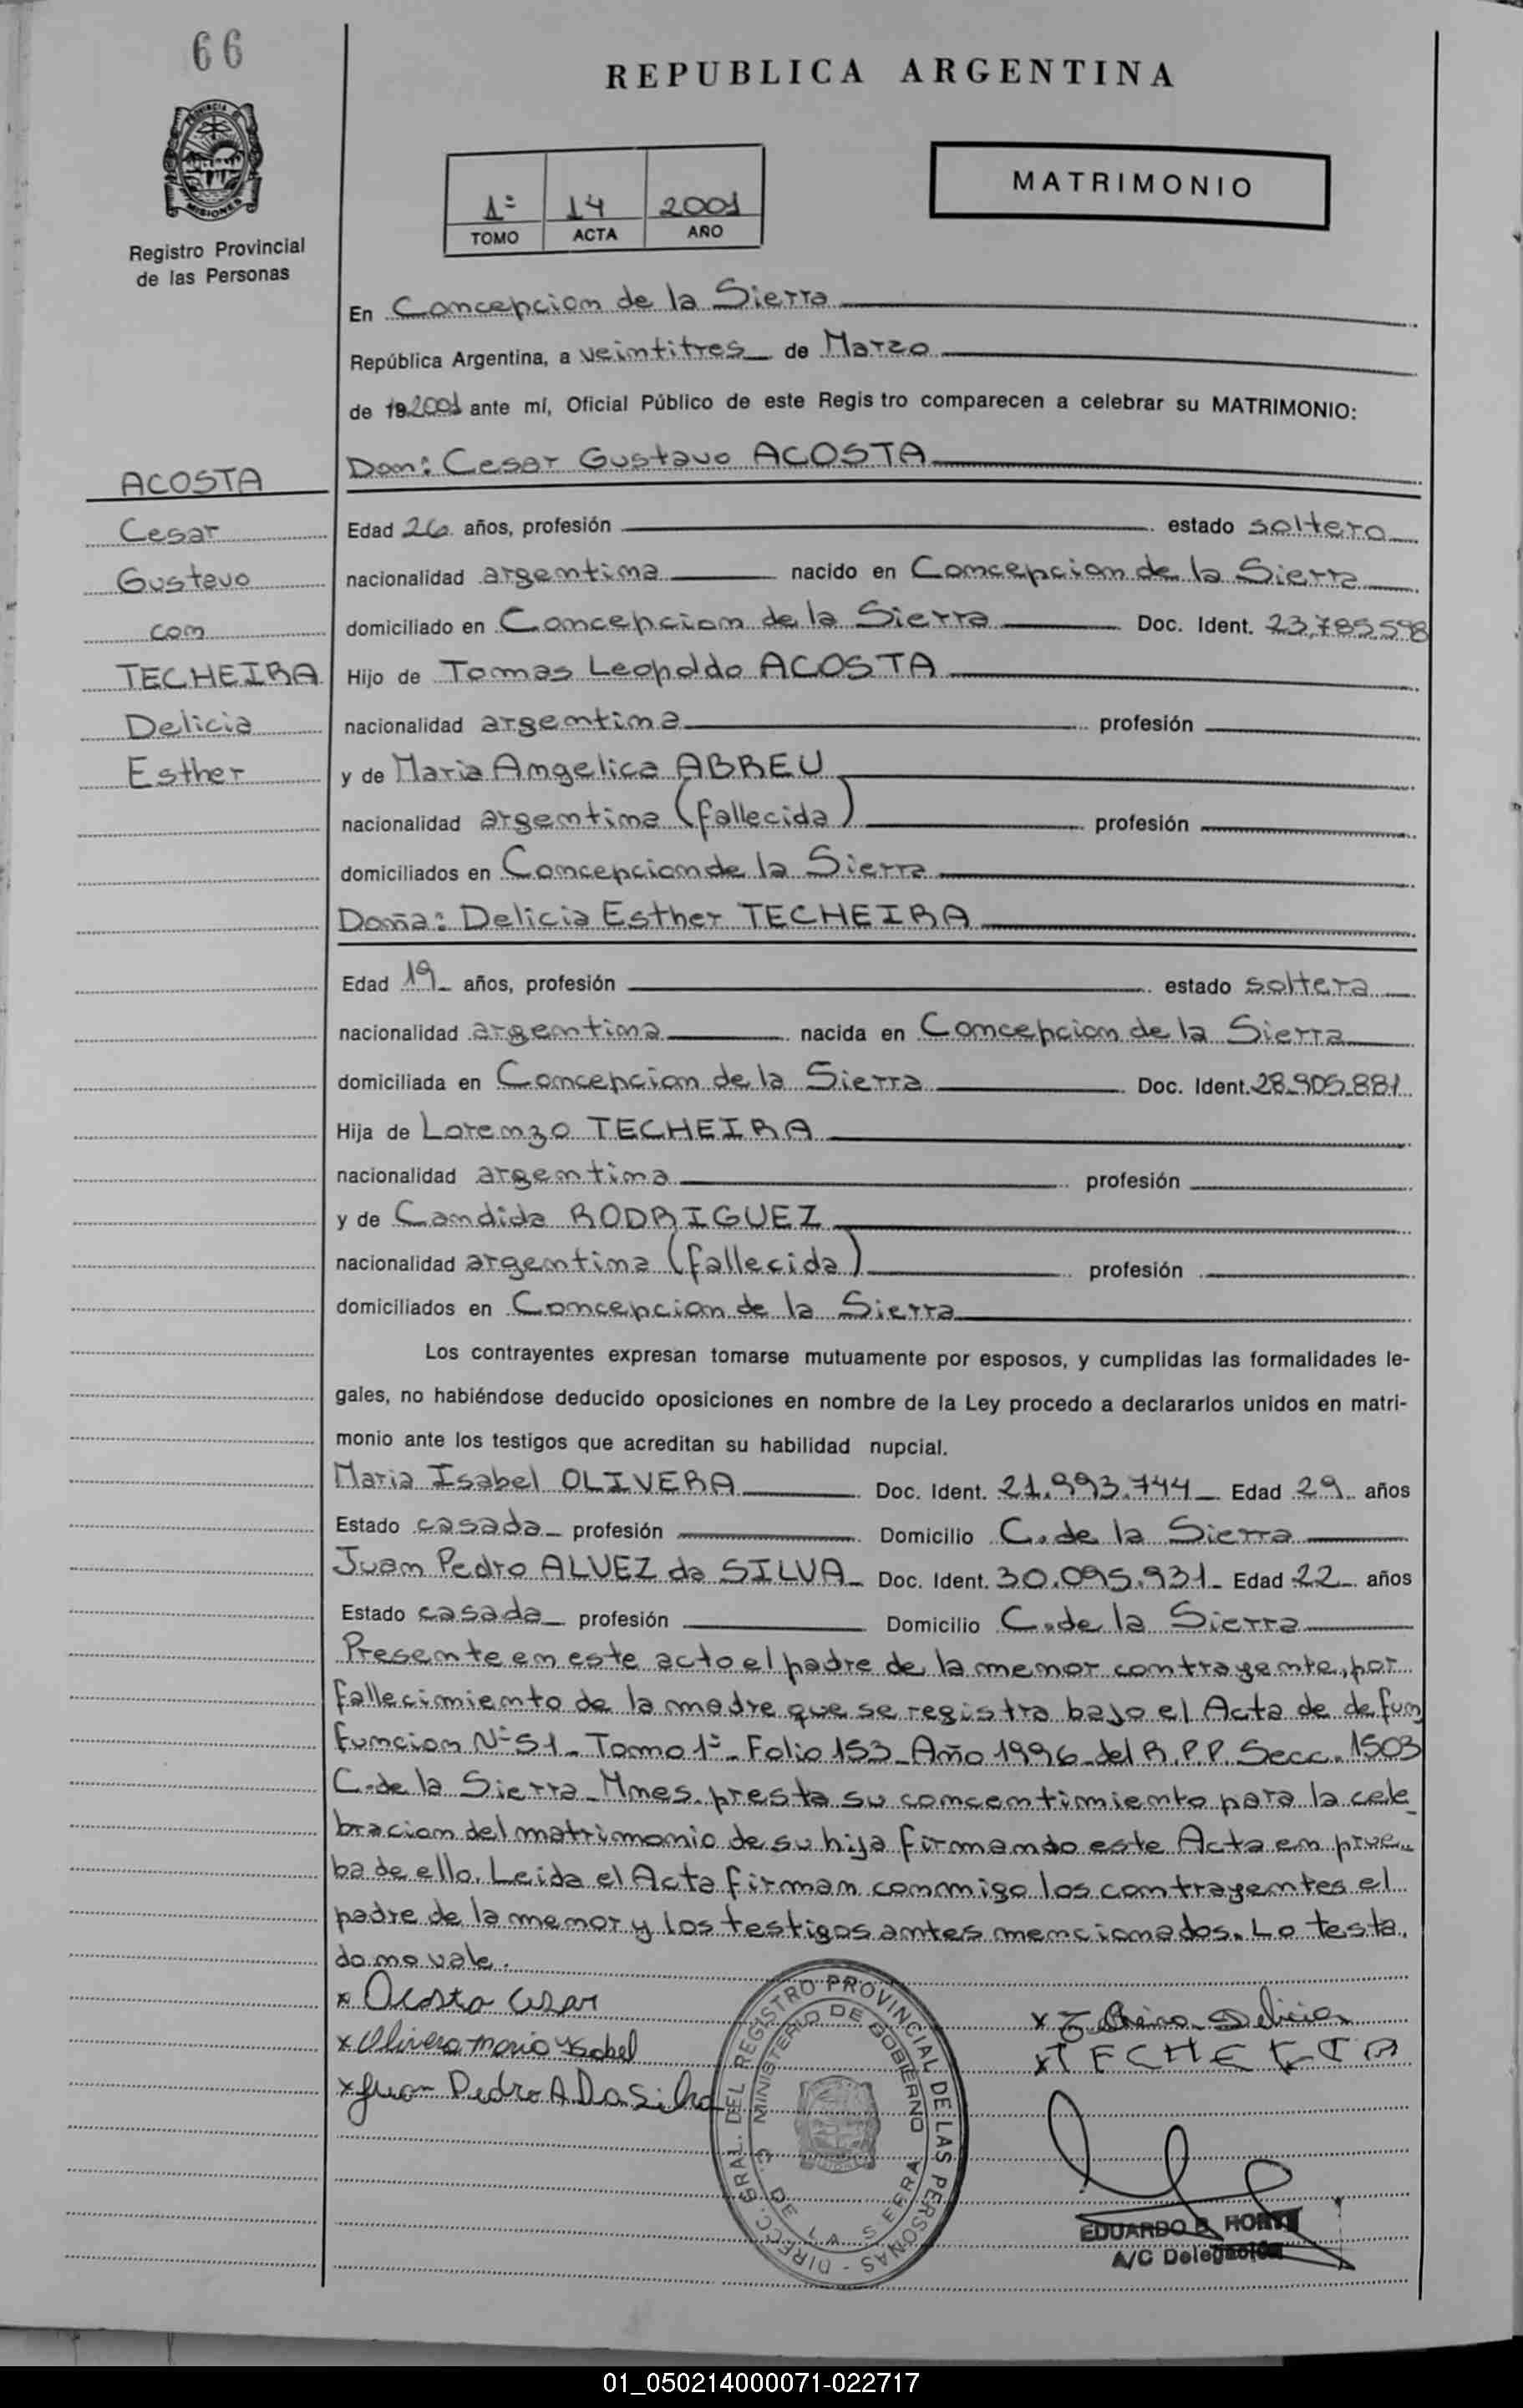 66
REPUBLICA ARGENTINA
PROVINCIA DE
MISIONES
Registro Provincial
de las Personas
MATRIMONIO
1º 14 2001
TOMO ACTA AÑO
En Concepcion de la Sierra
República Argentina, a veintitres de Marzo
de 19 2001 ante mí, Oficial Público de este Regis tro comparecen a celebrar su MATRIMONIO:
Don: Cesar Gustavo ACOSTA
ACOSTA
Cesar
Gustavo
con
TECHEIRA
Delicia
Esther
Edad 26 años, profesión estado soltero
nacionalidad argentina nacido en Concepcion de la Sierra
domiciliado en Concepcion de la Sierra Doc. Ident. 23.785.598
Hijo de Tomas Leopoldo ACOSTA
nacionalidad argentina profesión
y de Maria Angelica ABREU
nacionalidad argentina (fallecida) profesión
domiciliados en Concepcion de la Sierra
Doña: Delicia Esther TECHEIRA
Edad 19 años, profesión estado soltera
nacionalidad argentina nacida en Concepcion de la Sierra
domiciliada en Concepcion de la Sierra Doc. Ident. 28.905.881
Hija de Lorenzo TECHEIRA
nacionalidad argentina profesión
y de Candida RODRIGUEZ
nacionalidad argentina (fallecida) profesión
domiciliados en Concepcion de la Sierra
Los contrayentes expresan tomarse mutuamente por esposos, y cumplidas las formalidades le-
gales, no habiéndose deducido oposiciones en nombre de la Ley procedo a declararlos unidos en matri-
monio ante los testigos que acreditan su habilidad nupcial.
Maria Isabel OLIVERA Doc. Ident. 21.993.744 Edad 29 años
Estado casada profesión Domicilio C. de la Sierra
Juan Pedro ALVEZ da SILVA Doc. Ident. 30.095.931 Edad 22 años
Estado casada profesión Domicilio C. de la Sierra
Presente en este acto el padre de la menor contrayente, por
fallecimiento de la madre que se registra bajo el Acta de defun
funcion Nº 51 Tomo 1º Folio 153 Año 1996 del R.P.P. Secc. 1503
C. de la Sierra Mnes. presta su concentimiento para la cele
bracion del matrimonio de su hija firmando este Acta en prue
ba de ello. Leida el Acta firman conmigo los contrayentes el
padre de la menor y los testigos antes mencionados. Lo testa
do no vale.
x Acosta Cesar
x Olivera Maria Isabel
x Juan Pedro A Da Silva
Delicia
DIRECC. GRAL. DEL REGISTRO PROVINCIAL DE LAS PERSONAS
MINISTERIO DE GOBIERNO
C. DE LA SIERRA
EDUARDO
A/C Delegación
01_050214000071-022717